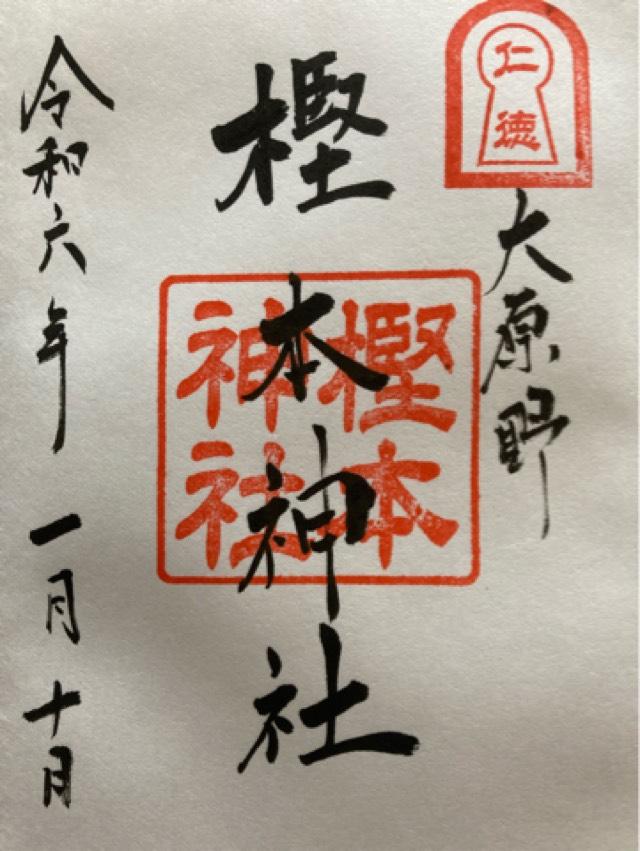 仁徳
大原野
樫本神社
樫本
神社
令和六年一月十月